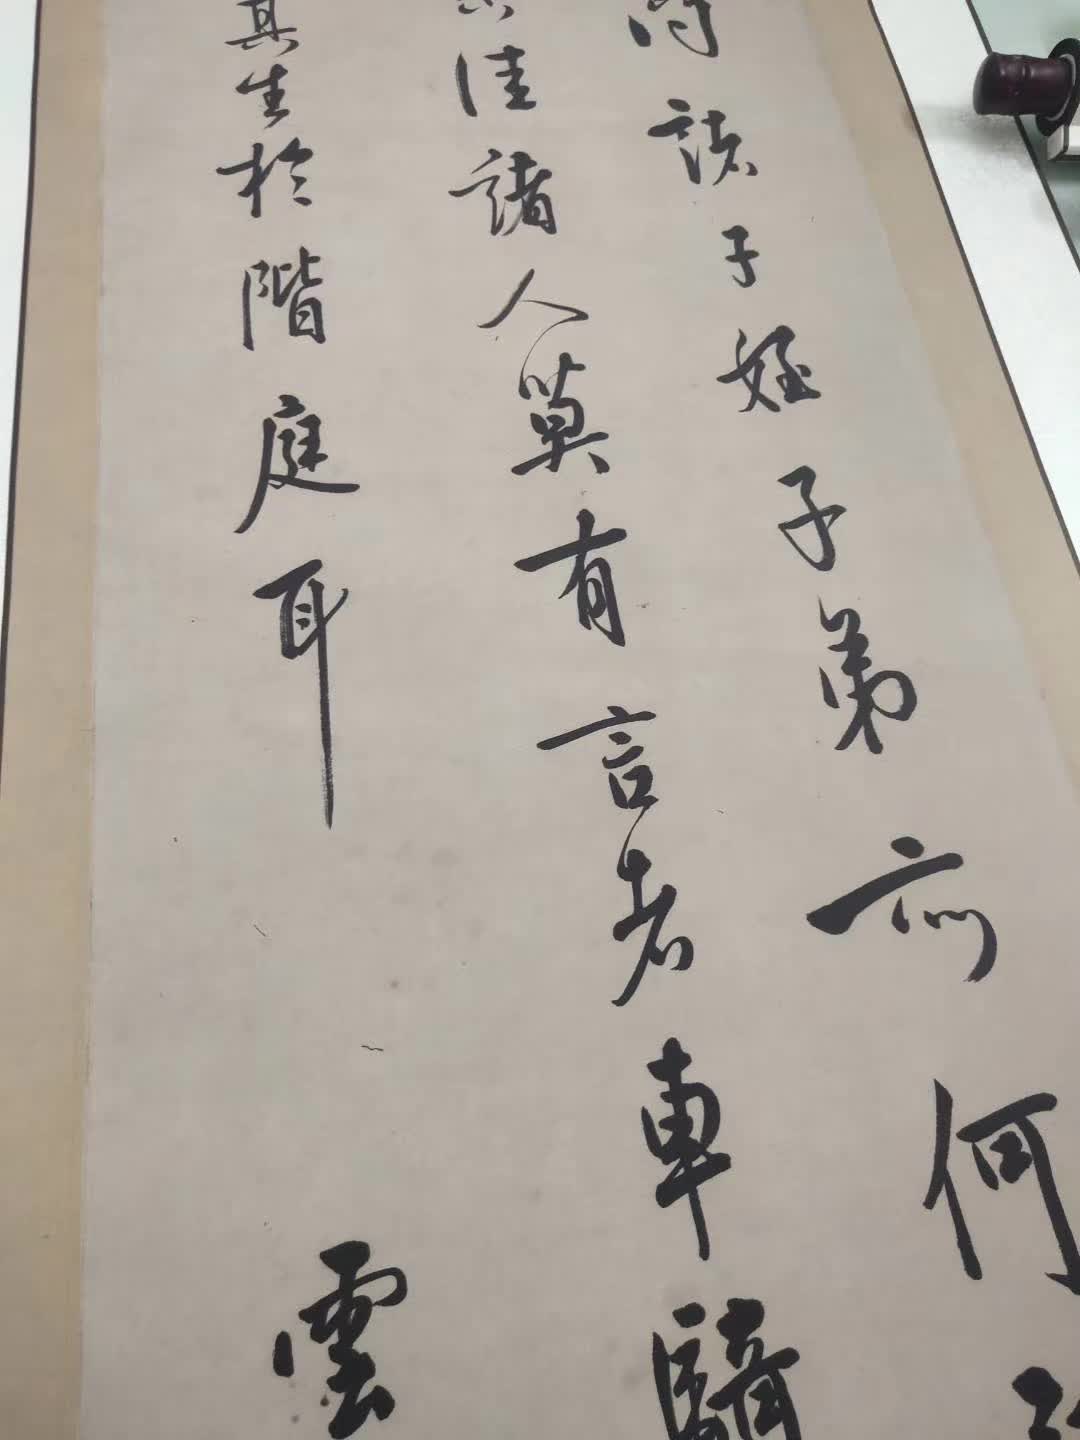 問諸子姪子弟亦何
佳諸人莫有言者車騎
其生於階庭耳
雲